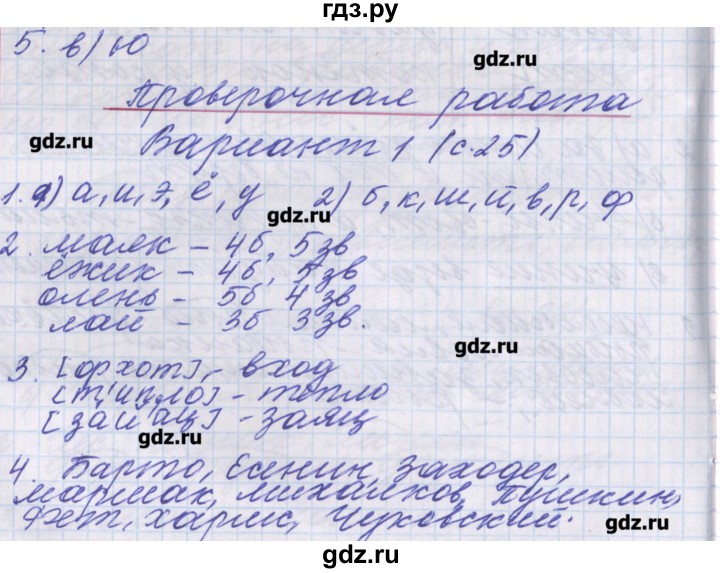 гдз.ру
5. в) Ю
gdz.ru
Проверочная работа
gdz.ru
Вариант 1 (с.25)
1. а) а, и, э, ё, у 2) б, к, ш, й, в, р, ф
gdz.ru
2. маяк – 4б, 5зв
ёжик – 4б, 5зв
олень – 5б 4 зв
лай – 3б 3зв.
gdz.ru
3. [фхот] - вход
[т'ипло] - тепло
[зай'ац] - заяц
gdz.ru
4. Барто, Есенин, Заходер,
Маршак, Михалков, Пушкин,
Фет, Хармс, Чуковский.
gdz.ru
gdz.ru